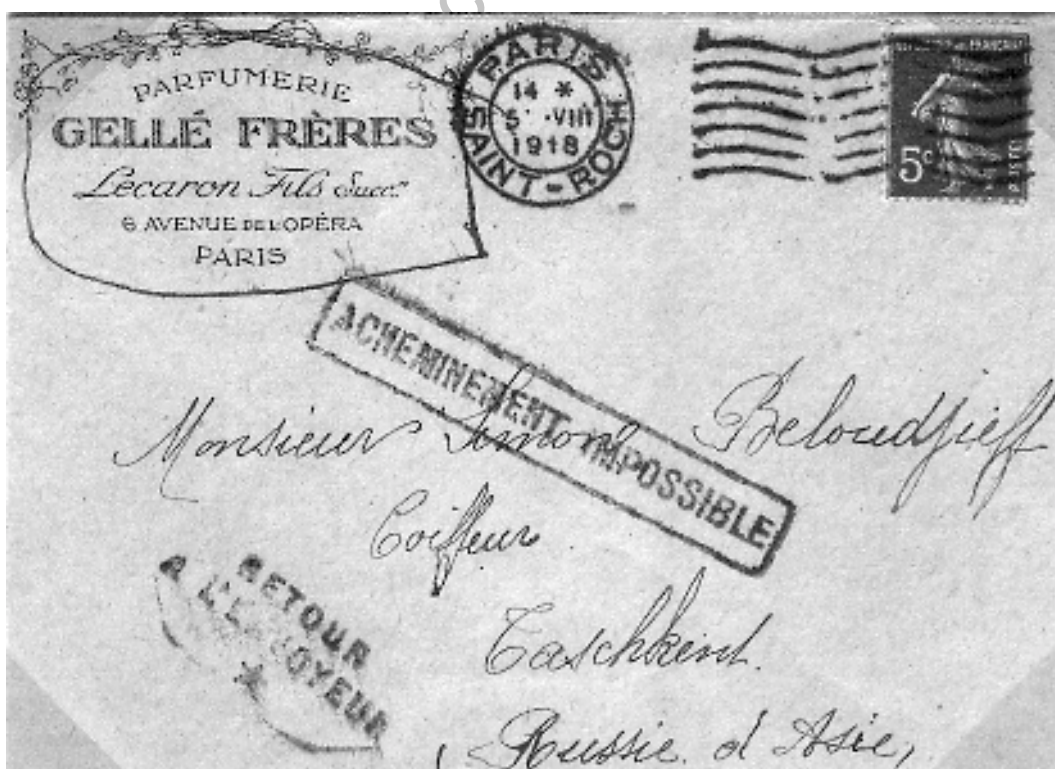 PARFUMERIE
GELLÉ FRÈRES
Lecaron Fils Succrs
6 AVENUE DE L'OPÉRA
PARIS
PARIS
SAINT-ROCH
14 *
5 VIII
1918
5c
ACHEMINEMENT IMPOSSIBLE
Monsieur Simon Beloudjieff
Coiffeur
Taschkent.
Russie d'Asie,
RETOUR
A L'ENVOYEUR